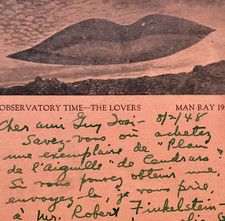 OBSERVATORY TIME—THE LOVERS MAN RAY 19
Cher ami Guy 8/2/48
Savez-vous où achetez
une exemplaire de "Plan
de l'aiguille" de Cendrars"
Si vous pouvez obtenir une
envoyez-la, je vous prie,
à Mr. Robert Finkelstein